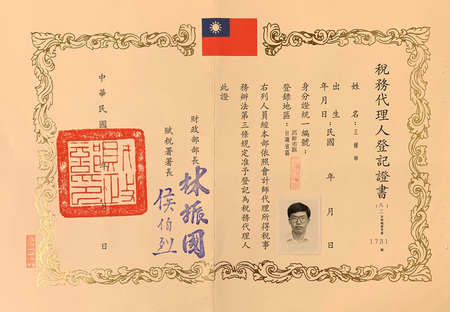 稅務代理人登記證書
1731
姓名：王健華
出生年月日：民國　年　月　日
身分證統一編號：
登錄地區：
台灣省區
右列人員經本部依照會計師代理所得稅事
務辦法第三條規定准予登記為稅務代理人
此證
財政部部長 林振國
賦稅署署長 侯伯烈
中華民國　年　月　日
財政部印